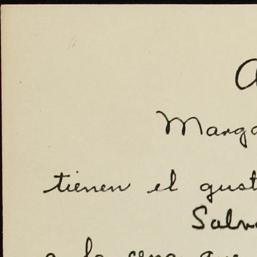 A
Marga
tienen el gust
Salv
a la cena que